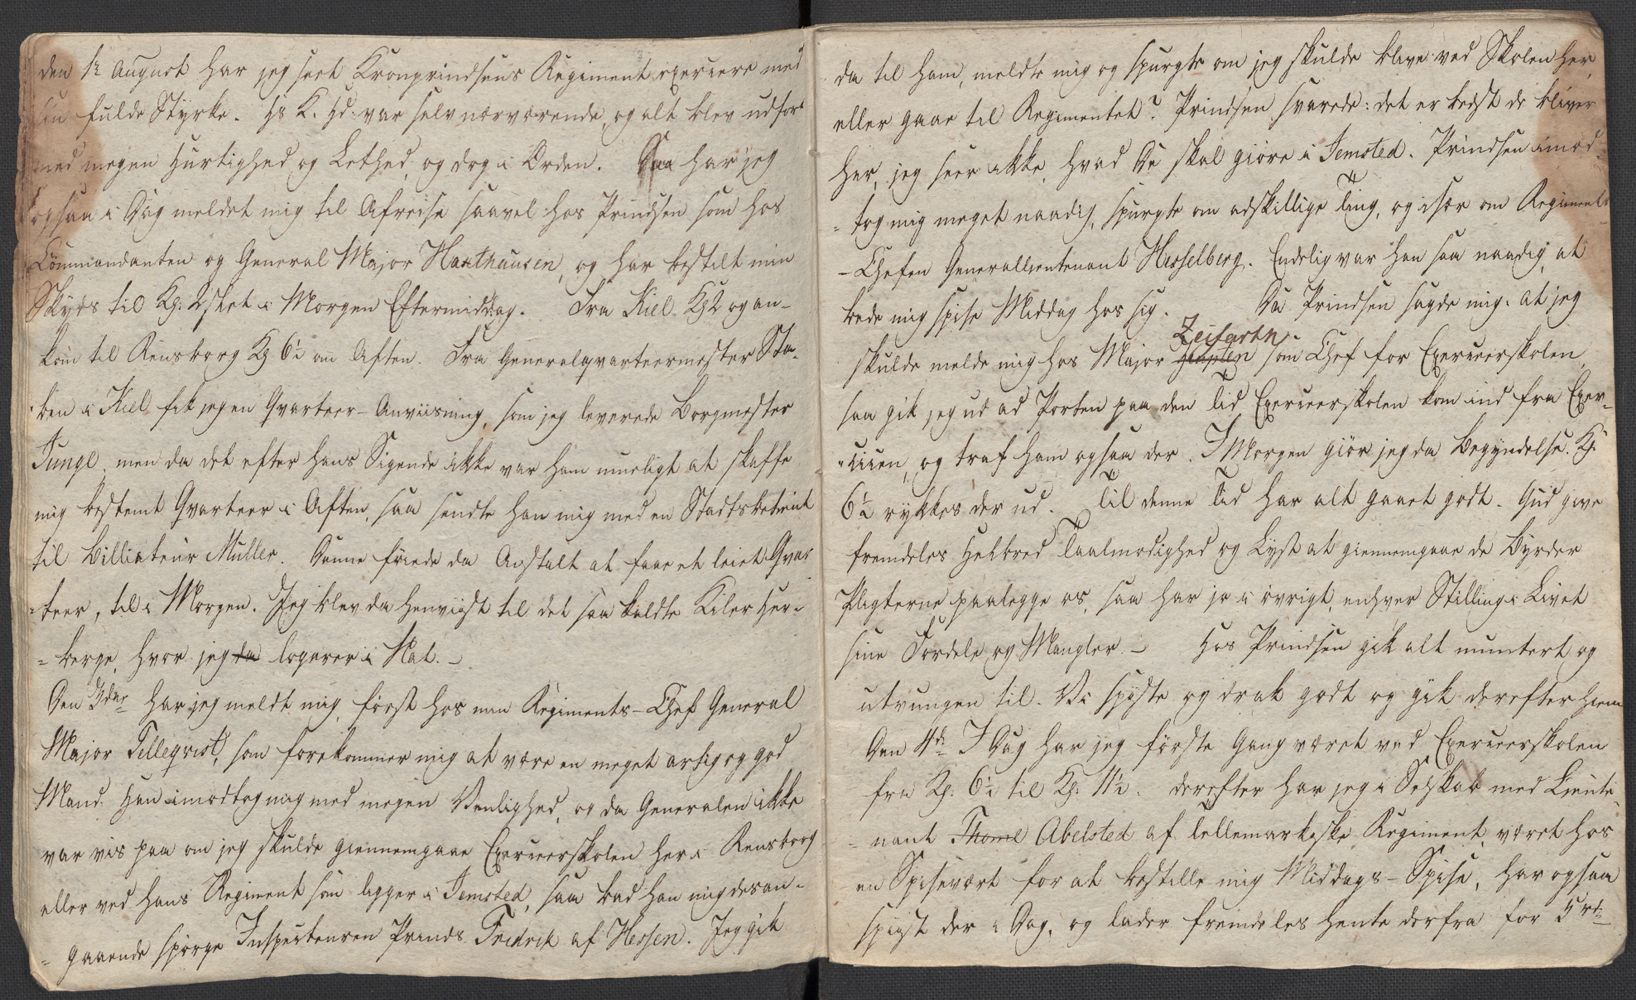 den 1te August har jeg seet Kronprindsens Regiment exercere med
sin fulde Styrke. Hs K. Hd: var selv nærværende, og alt blev udført
med megen Hurtighed og Lethed, og dog i Orden. Saa har jeg
ogsaa i Dag meldet mig til Afreise saavel hos Prindsen som hos
Commandanten og General Major Haxthausen, og har bestilt min
Skyds til Kl. slet i Morgen Eftermiddag. Fra Kiel Kl 2 og an-
kom til Rensborg Kl 6½ om Aften. Fra Generalqvarteermester Sta-
ben i Kiel fik jeg en Qvarteer-Anviisning, som jeg leverede Borgmester
Junge, men da det efter hans Sigende ikke var ham mueligt at skaffe
mig bestemt Qvarteer i Aften, saa sendte han mig med en Stadtsbetient
til Billieteur Müller. Denne føiede da Anstalt at faae et leiet Qvar
-teer, til i Morgen. Jeg blev da henviist til det saa kaldte Kiler Her-
-berge, hvor jeg da logerer i Nat. -
Den 3die har jeg meldt mig, først hos min Regiments-Chef General
Major Tellequist, som forekommer mig at være en meget artig og god
Mand. Han imodtog mig med megen Venlighed, og da Generalen ikke
var vis paa om jeg skulde giennemgaae Exerceerskolen her i Rensborg
eller ved hans Regiment som ligger i Jemsted, saa bad han mig desan-
-gaaende spørge Inspecteuren Prinds Fredrik af Hessen. Jeg gik
da til ham, meldte mig og spurgte om jeg skulde blive ved Skolen her,
eller gaae til Regimentet? Prindsen svarede: det er bedst de bliver
her, jeg seer ikke, hvad De skal giøre i Jemsted. Prindsen imod-
-tog mig meget naadig, spurgte om adskillige Ting, og især om Regiments
-Chefen Generallieutenant Hesselberg. Endelig var han saa naadig, at
bede mig spise Middag hos sig. Da Prindsen sagde mig: at jeg
skulde melde mig hos Major Zeifarth som Chef for Exerceerskolen,
saa gik jeg ud ad Porten paa den Tid Exerceerskolen kom ind fra Exer-
-citien, og traf ham ogsaa der. I Morgen giør jeg da Begyndelse. Kl.
6½ rykkes der ud. Til denne Tid har alt gaaet godt. Gud give
fremdeles Helbred Taalmodighed og Lyst at giennemgaae de Byrder
Pligterne paalegge os, saa har jo i øvrigt enhver Stilling i Livet
sine Fordele og Mangler. - Hos Prindsen gik alt muntert og
utvungen til. Vi spiste og drak godt og gik derefter hiem
Den 4de I Dag har jeg første Gang været ved Exerceerskolen
fra Kl. 6½ til Kl. 11½. derefter har jeg i Selskab med Lieute-
-nant Thome Abelsted af tellemarkeske Regiment, været hos
en Spisevært for at bestille mig Middags-Spise, har ogsaa
spiist der i Dag, og lader fremdeles hente derfra for 5